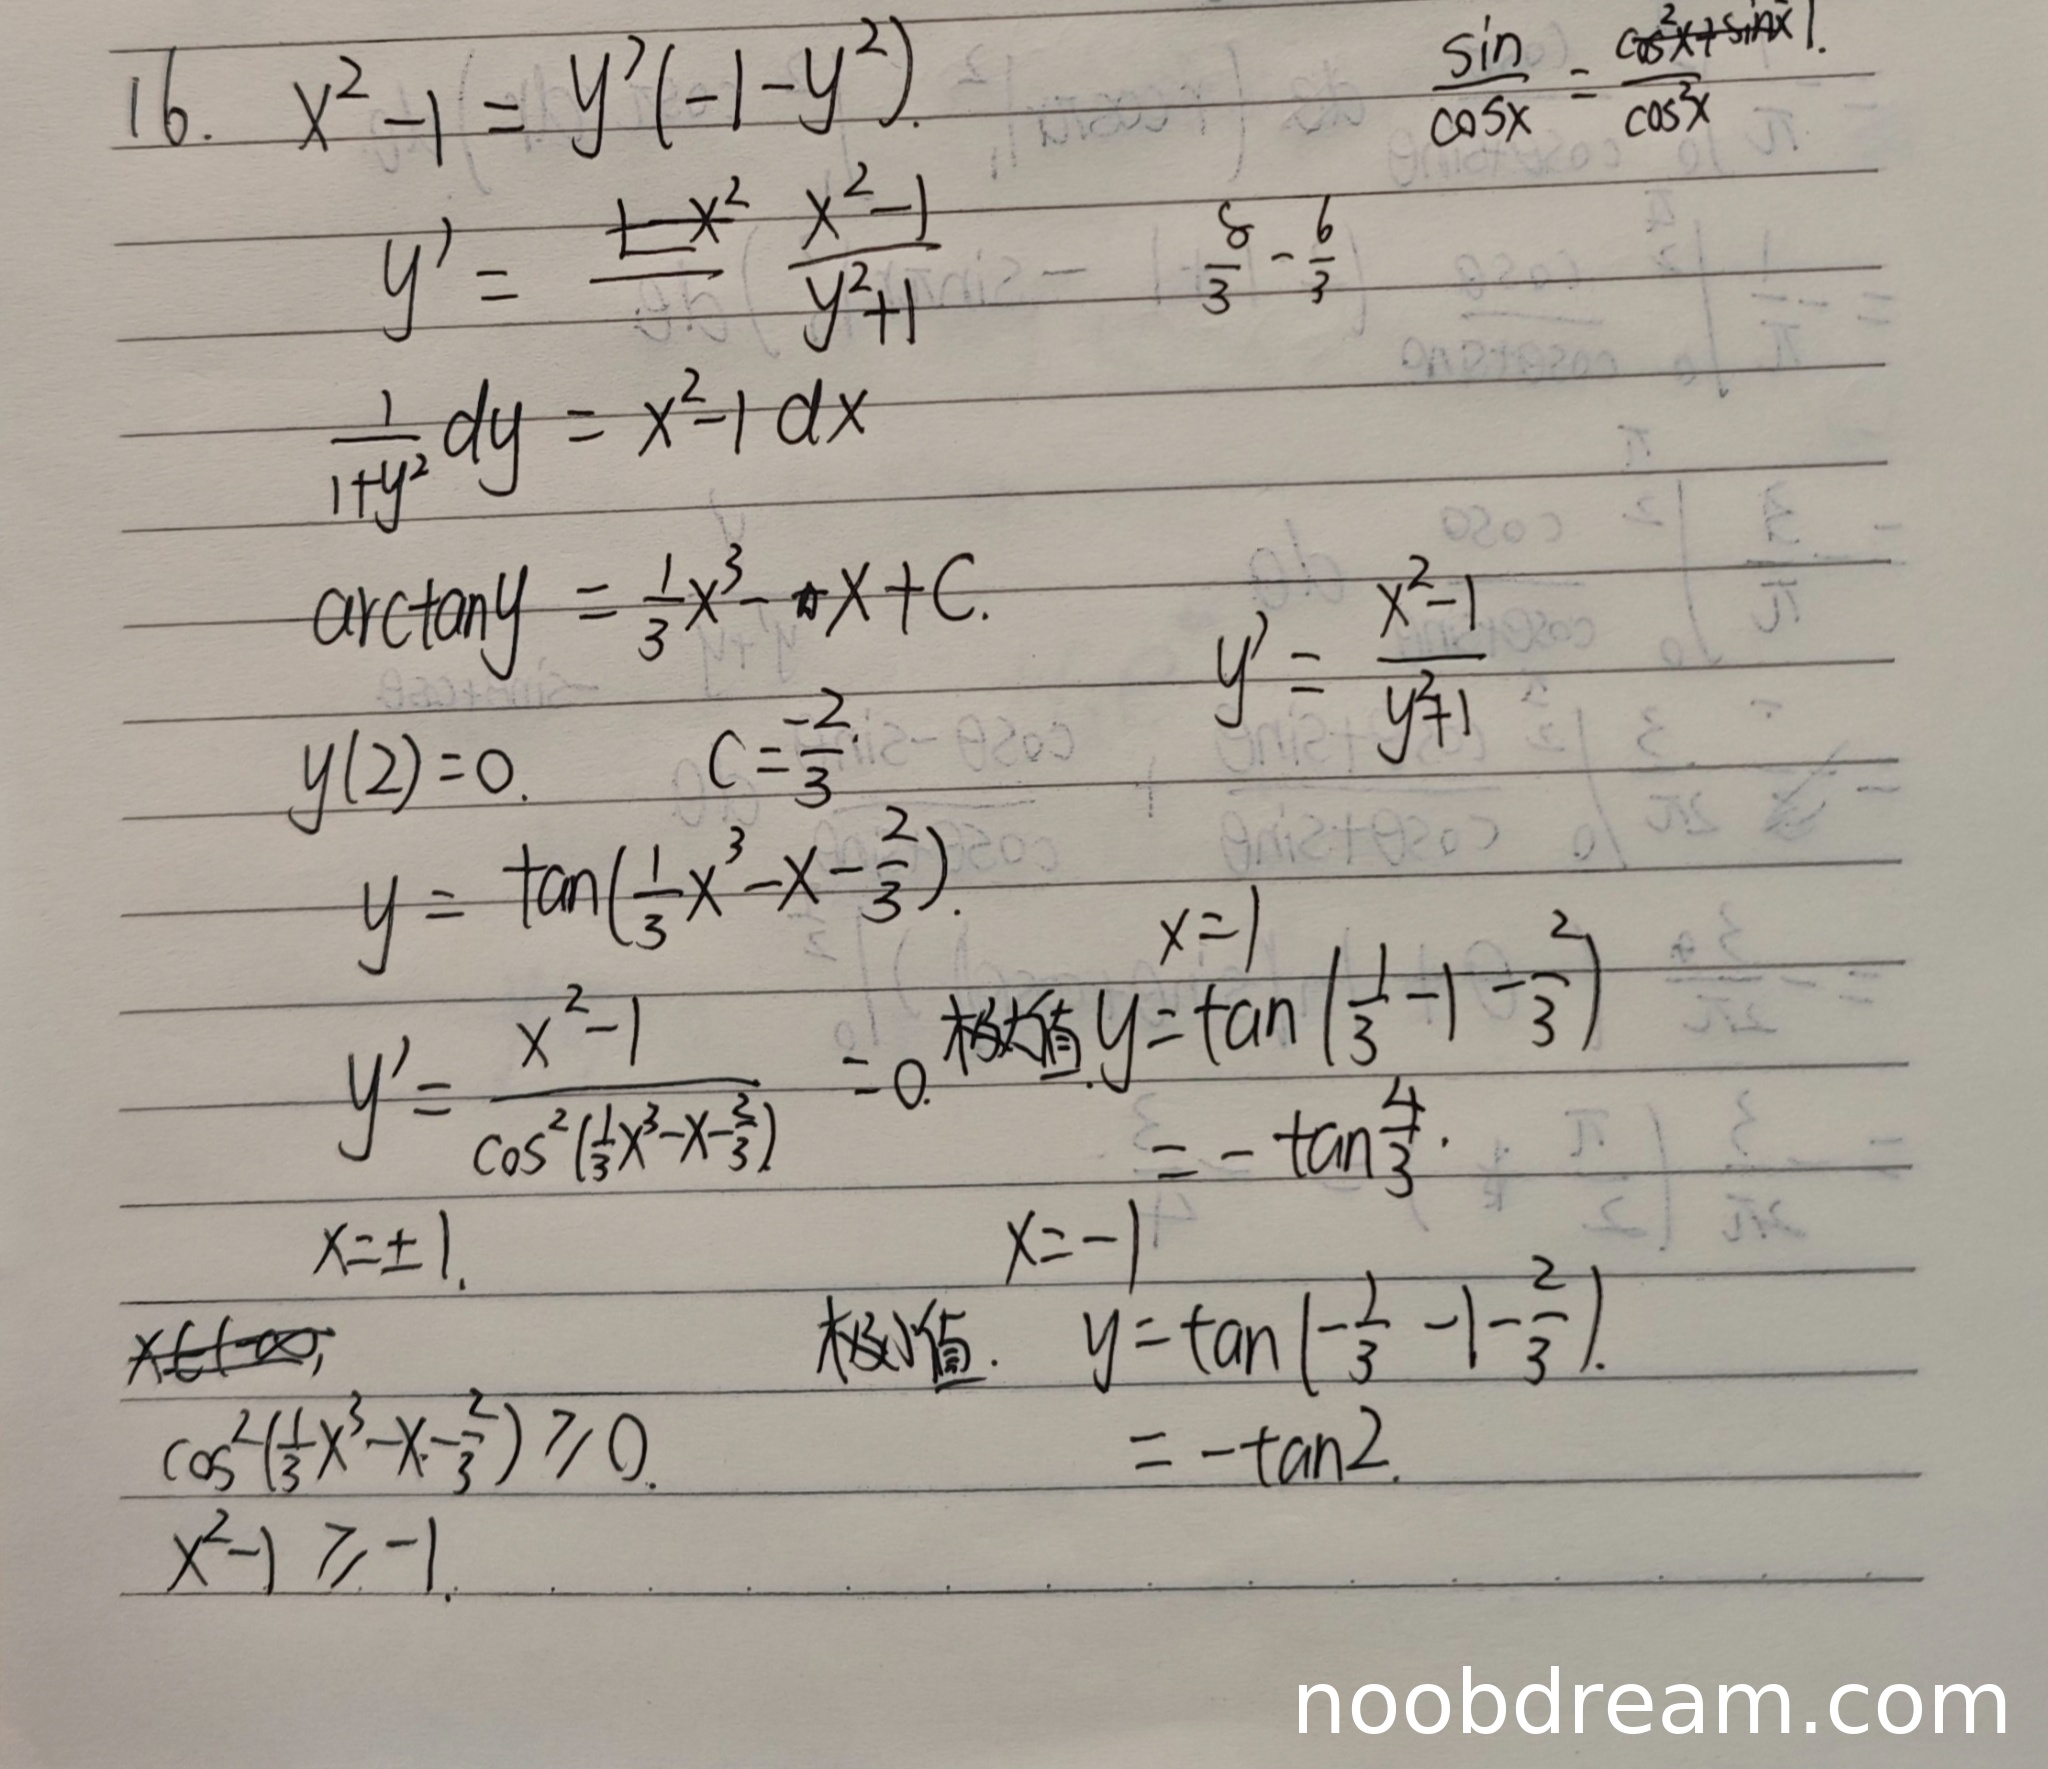 16. x² - 1 = y'(-1-y²).
sin/cosx = 1/cos²x.
y' = (x²-1)/(y²+1)
8/3 - 6/3
1/(1+y²) dy = x²-1 dx
arctany = 1/3 x³ - x + C.
y' = (x²-1)/(y²+1)
y(2)=0. C = -2/3.
y = tan(1/3 x³ - x - 2/3).
x=1
y' = (x²-1)/cos²(1/3 x³-x-2/3) = 0. 极大值. y = tan(1/3 - 1 - 2/3)
= - tan 4/3.
x=±1.
x=-1
极小值. y = tan(-1/3 - 1 - 2/3).
cos²(1/3 x³-x-2/3) ⩾ 0.
= -tan2.
x²-1 ⩾ -1.
noobdream.com